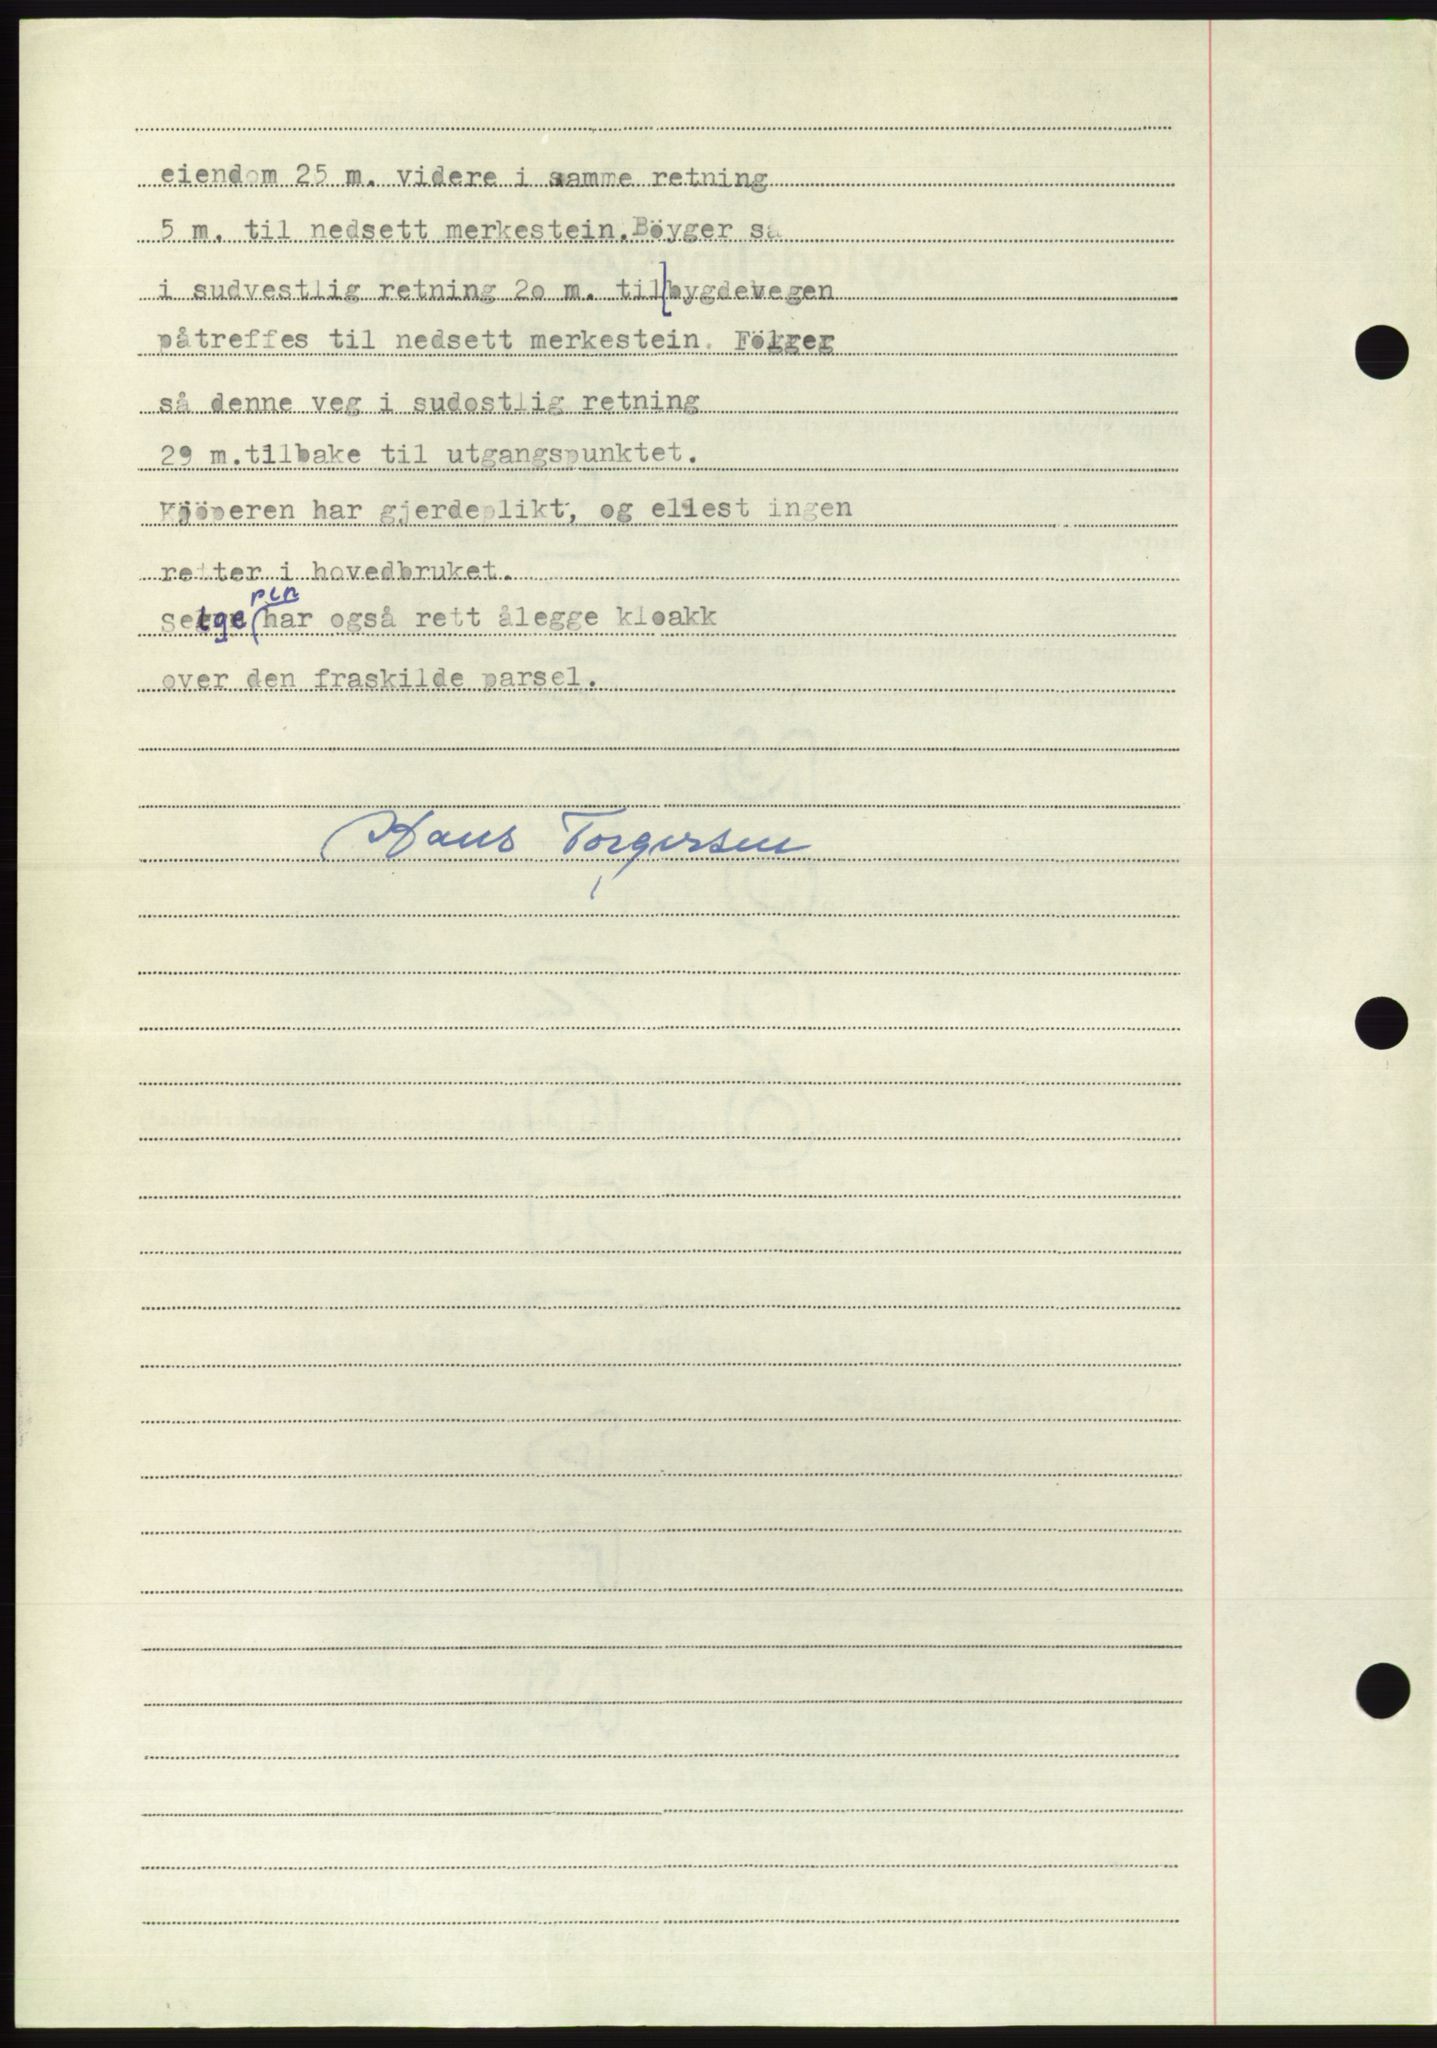 eiendom 25 m. videre i samme retning
5 m. til nedsett merkestein. Böyger så
i sudvestlig retning 2o m. til bygdevegen
påtreffes til nedsett merkestein. Fölger
så denne veg i sudostlig retning
29 m.tilbake til utgangspunktet.
Kjöperen har gjerdeplikt, og ellest ingen
retter i hovedbruket.
Selgeren har også rett ålegge kloakk
over den fraskilde parsel.
Hans Torgersen